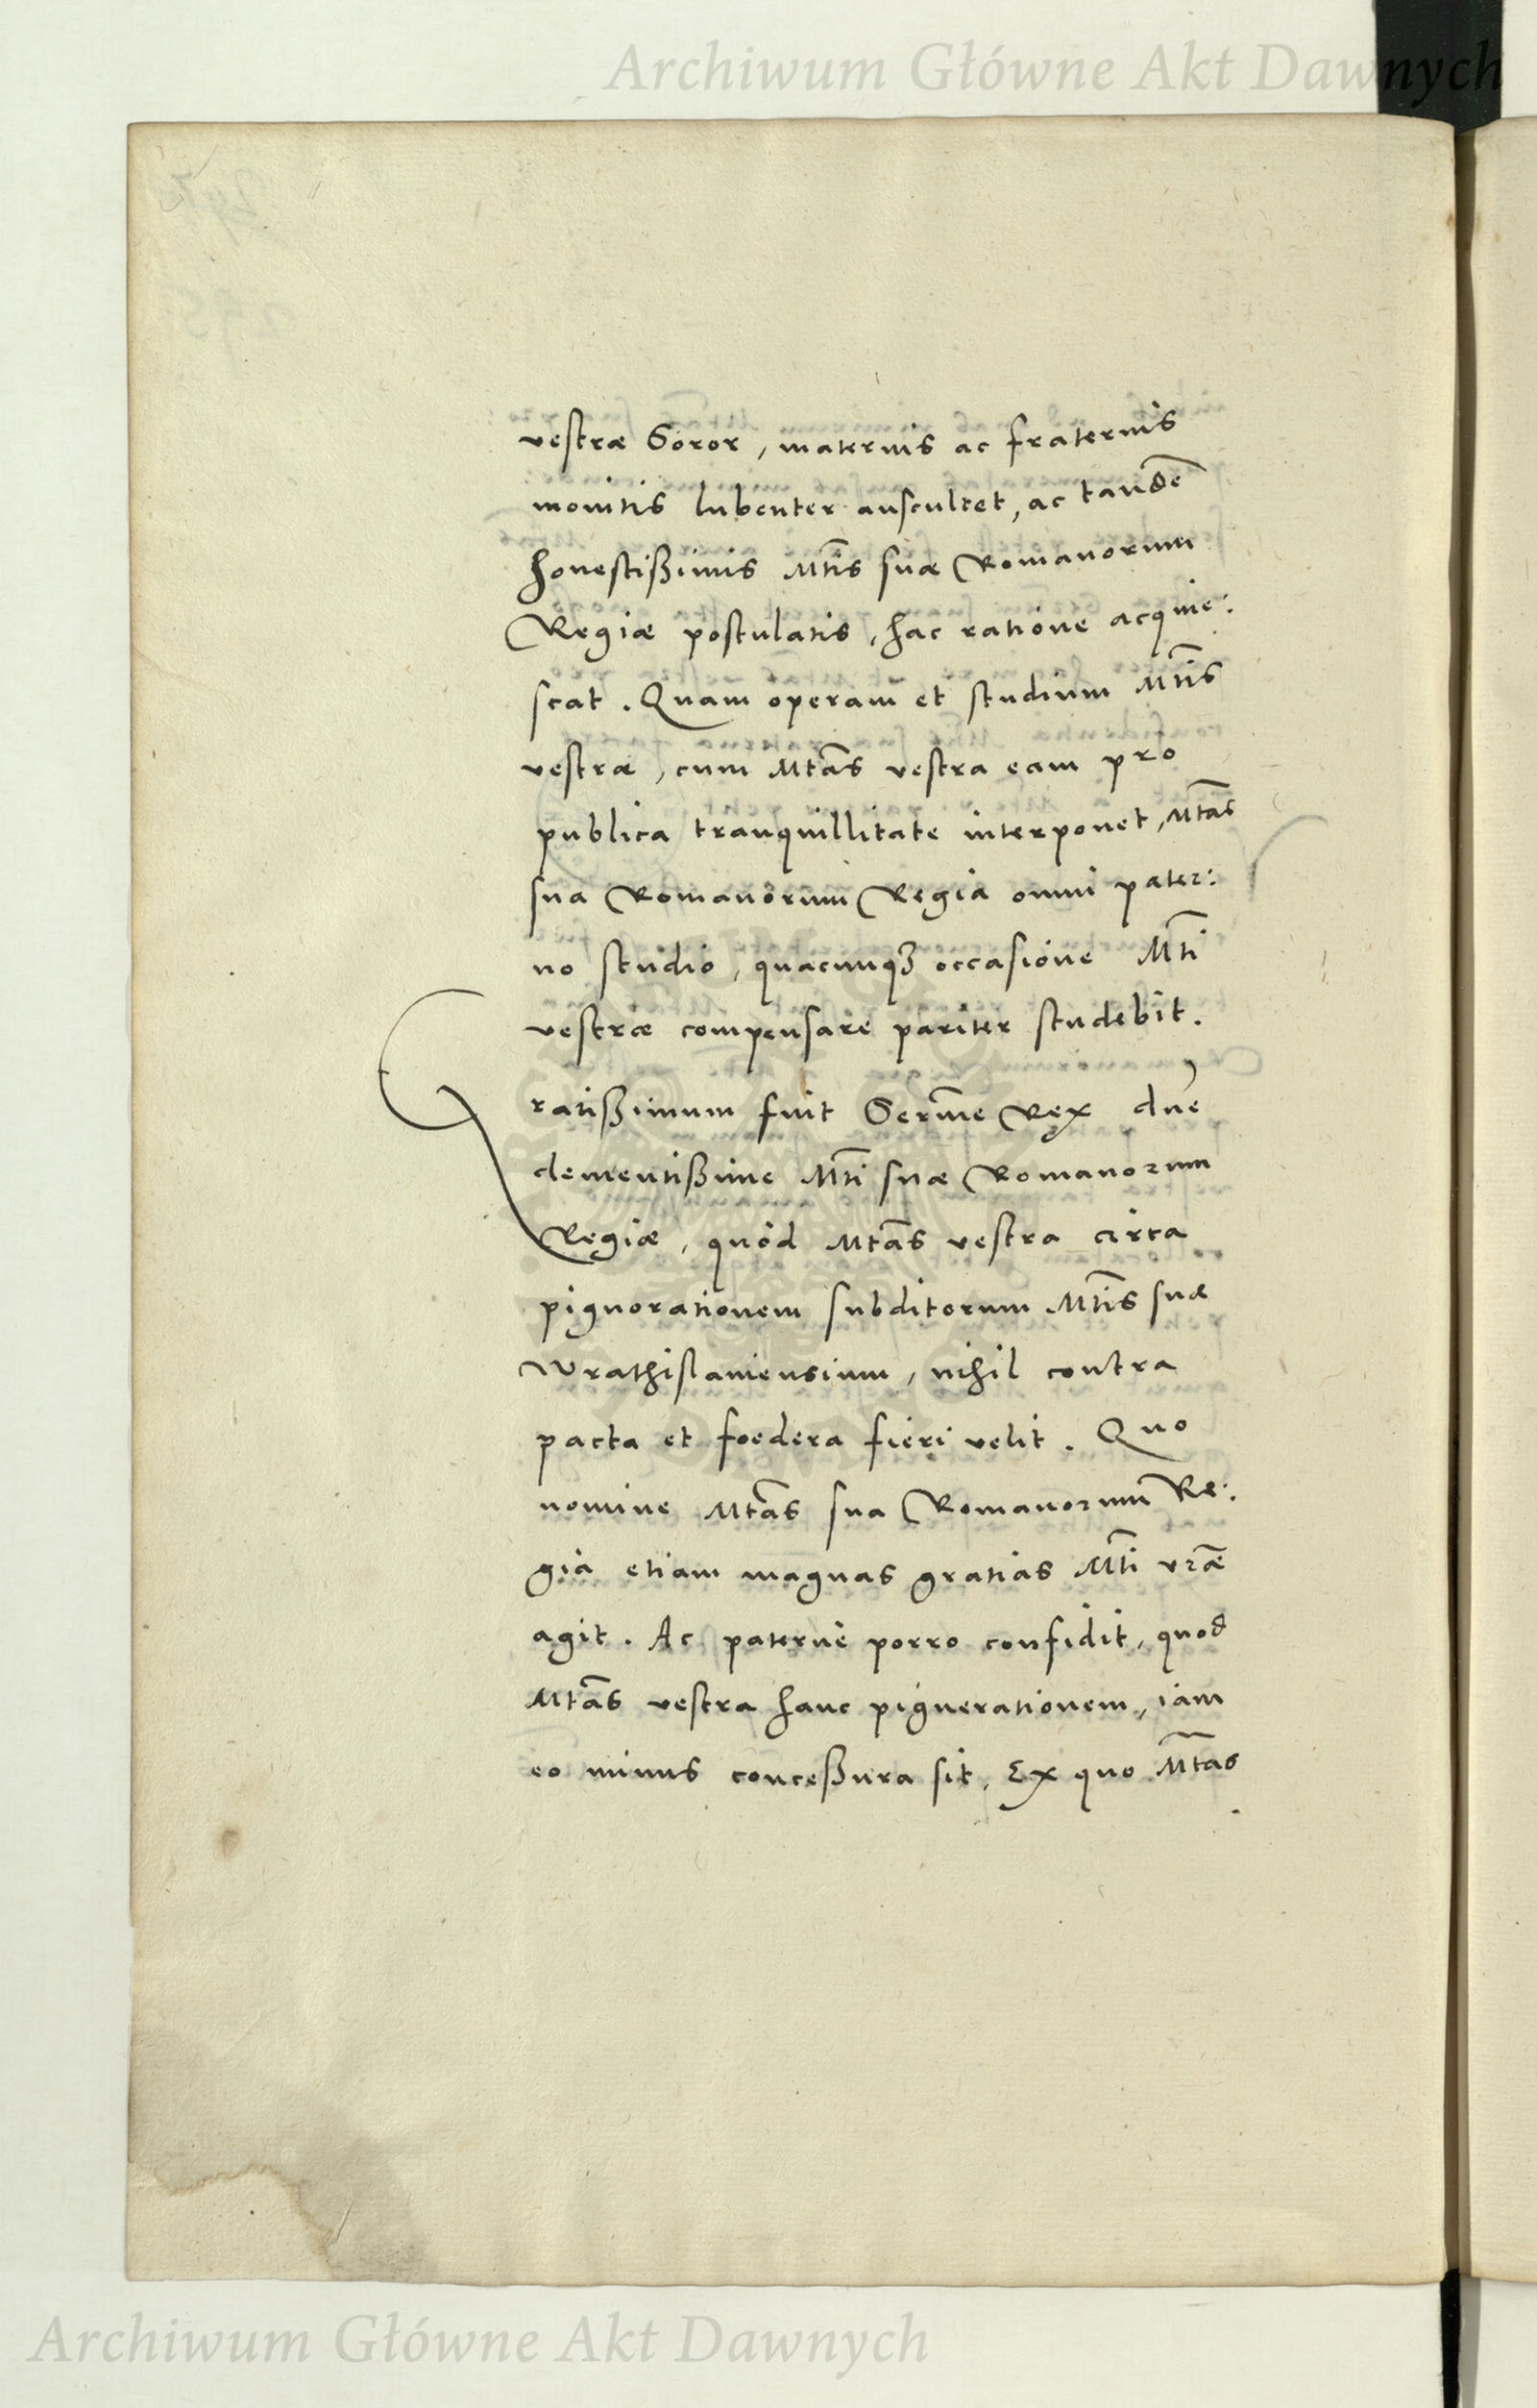 Archiwum Główne Akt Dawnych
vestræ Soror, maternis ac fraternis
monitis lubenter auscultet, ac tandē
honestißimis Mt̃is suæ Romanorum
Regiæ postulatis, hac ratione acquie:
scat. Quam operam et studium Mt̃is
vestræ, cum Mtãs vestra eam pro
publica tranquillitate interponet, Mtãs
sua Romanorum Regia omni pater:
no studio, quacunqꝫ occasione Mt̃i
vestræ compensare pariter studebit.
Gratißimum fuit Serm̃e Rex dñe
clementißime Mt̃i suæ Romanorum
Regiæ, quòd Mtãs vestra circa
pignorationem subditorum Mt̃is suæ
Wrathislaviensium, nihil contra
pacta et foedera fieri velit. Quo
nomine Mtãs sua Romanorum Re:
gia etiam magnas gratias Mt̃i vr̃æ
agit. Ac paternè porro confidit, quod
Mtãs vestra hanc pignerationem, iam
eo minus conceßura sit. Ex quo Mtãs
Archiwum Główne Akt Dawnych